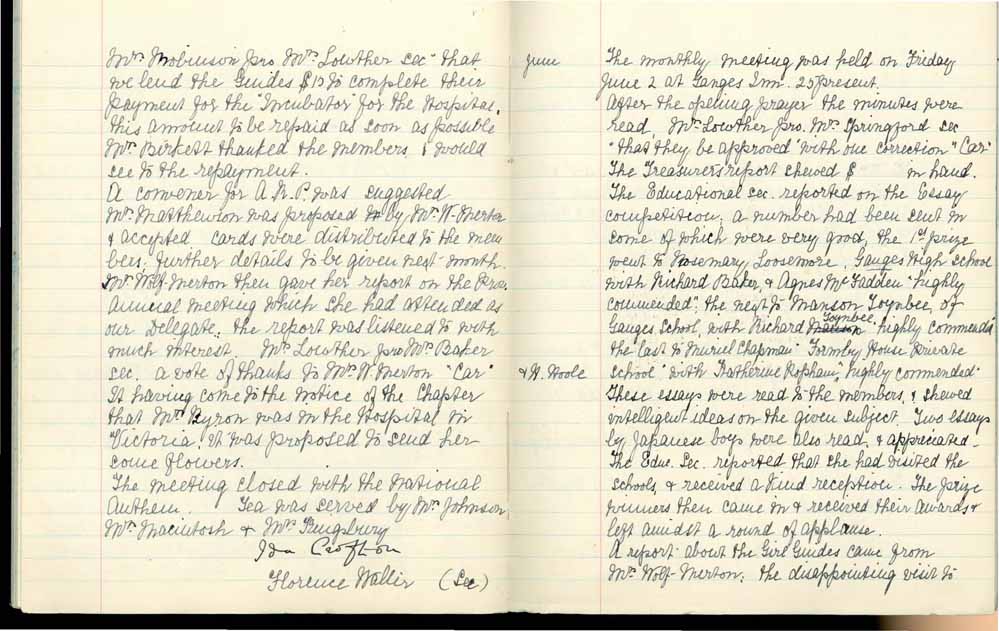 Mrs Robinson pro Mrs Lowther sec "that
we lend the Guides $15 to complete their
payment for the "Incubator for the Hospital.
this amount to be repaid as soon as possible
Mrs Birkett thanked the members, & would
see to the repayment.
A convener for A.R.P. was suggested
Mrs Matthewson was proposed by Mrs W-Merton
& accepted. Cards were distributed to the mem
bers. further details to be given next month.
Mrs Wolf-Merton then gave her report on the Prov.
Annual meeting which she had attended as
our Delegate. the report was listened to with
much interest. Mrs Lowther pro Mrs Baker
sec. a vote of thanks to Mrs W. Merton "Car"
It having come to the notice of the Chapter
that Mrs Byron was in the Hospital in
Victoria, it was proposed to send her
some flowers.
The meeting closed with the National
Anthem. Tea was served by Mrs Johnson,
Mrs Macintosh & Mrs
Ida Crofton
Florence Walter (Sec)
June
The monthly meeting was held on Friday
June 2 at Ganges Inn. 25 present.
After the opening prayer the minutes were
read, Mrs Lowther pro. Mrs Springford sec
"that they be approved" with one correction "Car"
The Treasurers report shewed $ in hand.
The Educational sec. reported on the Essay
competition; a number had been sent in
some of which were very good, the 1st prize
went to Rosemary Loosemore, Ganges High School
with Richard Baker, & Agnes McFadden "highly
commended". the next to Manson Toynbee, of
Ganges School, with Richard Toynbee "highly commended"
the last to Muriel Chapman "Formby House Private
& N. Hoole
School" with Katherine Popham, "highly commended"
These essays were read to the members, & shewed
intelligent ideas on the given subject. Two essays
by Japanese boys were also read, & appreciated.
The Educ. Sec. reported that she had visited the
schools, & received a kind reception. The prize
winners then came in & received their awards &
left amidst a round of applause.
A report about the Girl Guides came from
Mrs Wolf-Merton; the disappointing visit to